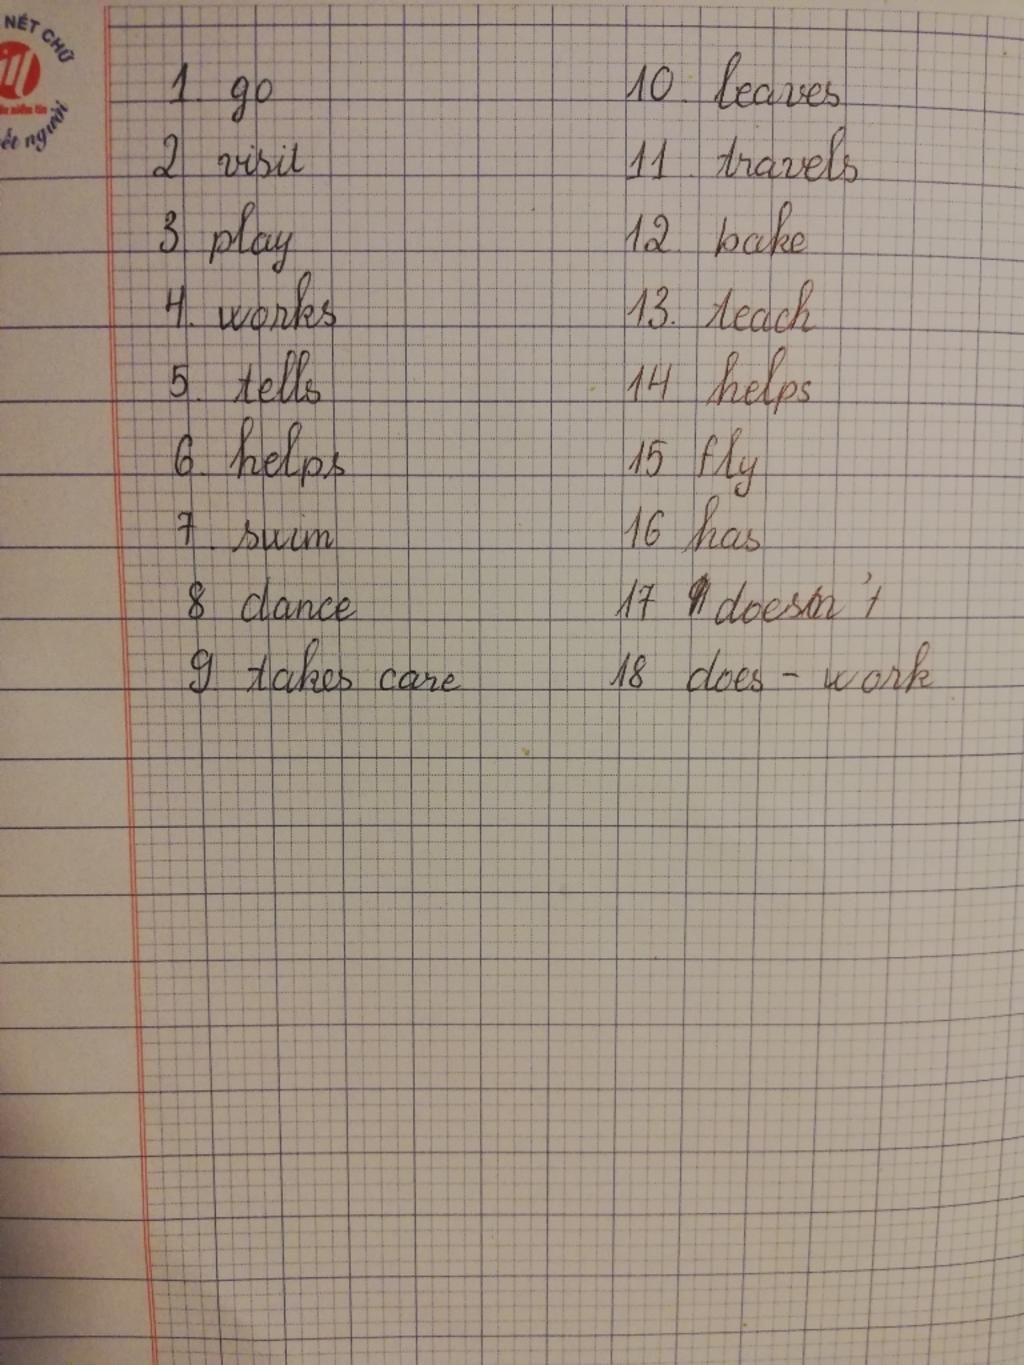 NÉT CHỮ
ết người
1. go
2 visit
3 play
4. works
5. tells
6. helps
7. swim
8 dance
9 takes care
10. leaves
11. travels
12. bake
13. teach
14 helps
15 fly
16 has
17 doesn't
18 does - work